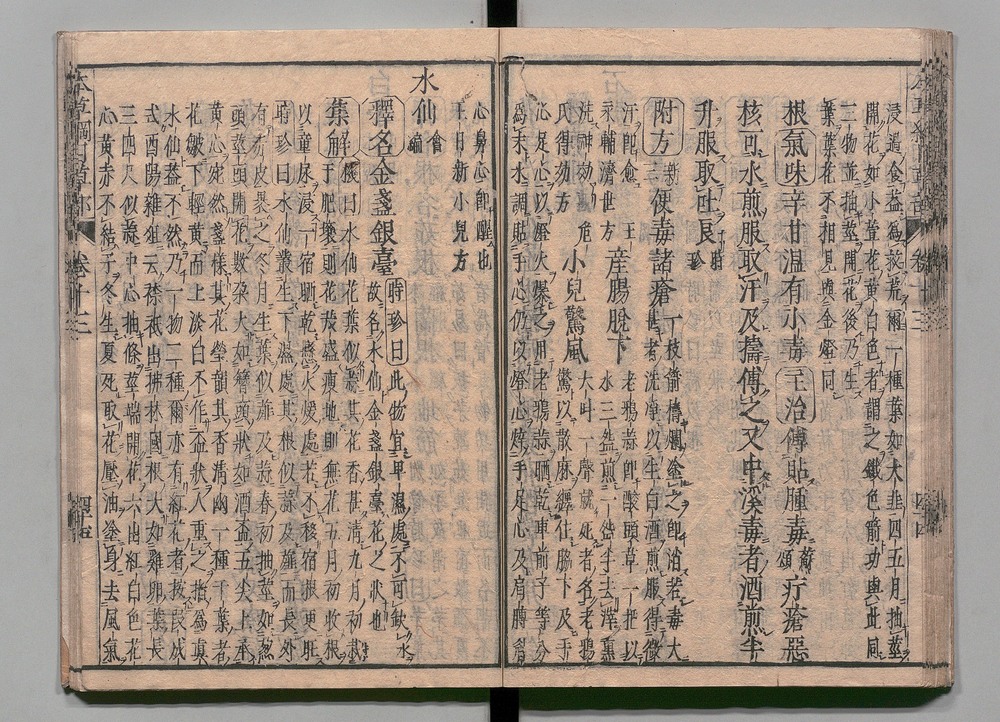 浸過食蓋爲救荒爾一種葉如大韭四五月抽莖
開花如小萱花黃白色者謂之鐵色箭功與此同
二物並抽莖開花後乃生
葉葉花不相見與金燈同
根氣味辛甘溫有小毒主治傅貼腫毒蘇頌疔瘡惡
核可水煎服取汗及擣傅之又中溪毒者酒煎半
升服取吐良時珍
附方新三便毒諸瘡一枝箭擣爛塗之卽消若毒大
甚者洗淨以生白酒煎服得微
汗卽愈 王
永輔濟世方產腸脫下老鴉蒜卽酸頭草一把以
水三盌煎一盌半去滓熏
洗神効 危
氏得効方小兒驚風大叫一聲就死者名老鴉
驚以散麻纏住脇下及手
心足心以燈火爆之用老鴉蒜晒乾車前子等分
爲末水調貼手心仍以燈心焠手足心及肩膊眉
心鼻心卽醒也
王日新小兒方
水仙會編
釋名金盞銀臺時珍曰此物宜卑濕處不可缺水
故名水仙金盞銀臺花之狀也
集解機曰水仙花葉似蒜其花香甚清九月初栽
于肥壤則花茂盛瘦地則無花五月初收根
以童尿浸一宿晒乾懸火煖處若不移宿根更旺
時珍曰水仙叢生下濕處其根似蒜及薤而長外
有赤皮裹之冬月生葉似薤及蒜春初抽莖如葱
頭莖頭開花數朵大如簪頭狀如酒盃五尖上承
黃心宛然盞樣其花瑩韻其香清幽一種千葉者
花皺下輕黃而上淡白不作盃狀人重之指爲眞
水仙蓋不然乃一物二種爾亦有紅花者按段成
式酉陽雜俎云捺祇出拂林國根大如雞卵葉長
三四尺似蒜中心抽條莖端開花六出紅白色花
心黃赤不結子冬生夏死取花壓油塗身去風氣
卷十三